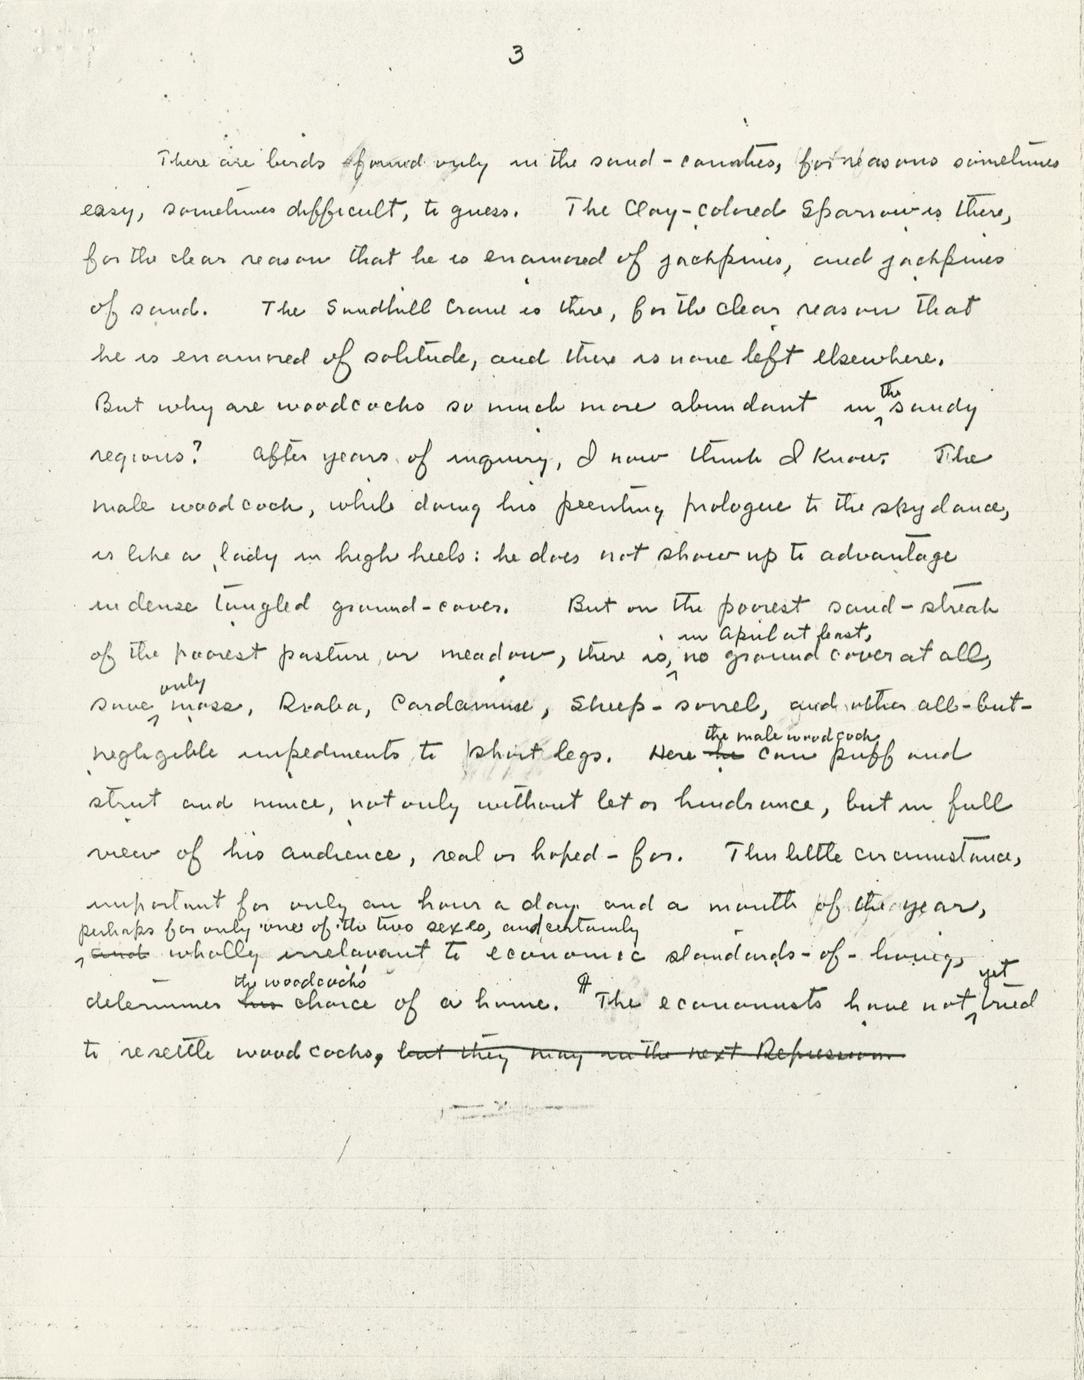 3
There are birds found only in the sand-counties, for reasons sometimes
easy, sometimes difficult, to guess. The Clay-colored Sparrow is there,
for the clear reason that he is enamored of jackpines, and jackpines
of sand. The Sandhill Crane is there, for the clear reason that
he is enamored of solitude, and there is none left elsewhere.
But why are woodcocks so much more abundant in the sandy
regions? After years of inquiry, I now think I know. The
male woodcock, while doing his peenting prologue to the sky dance,
is like a lady in high heels: he does not show up to advantage
in dense tangled ground-cover. But on the poorest sand-streak
in April at least,
of the poorest pasture or meadow, there is, no ground cover at all,
only
save moss, Draba, Cardamine, Sheep-sorrel, and other all-but-
the male woodcock
negligible impediments to short legs. Here he can puff and
strut and mince, not only without let or hindrance, but in full
view of his audience, real or hoped-for. This little circumstance,
important for only an hour a day and a month of the year,
perhaps for only one of the two sexes, and certainly
and wholly irrelavant to economic standards-of-living,
the woodcocks' yet
determines his choice of a home. ¶ The economists have not tried
to resettle woodcocks, but they may in the next Depression